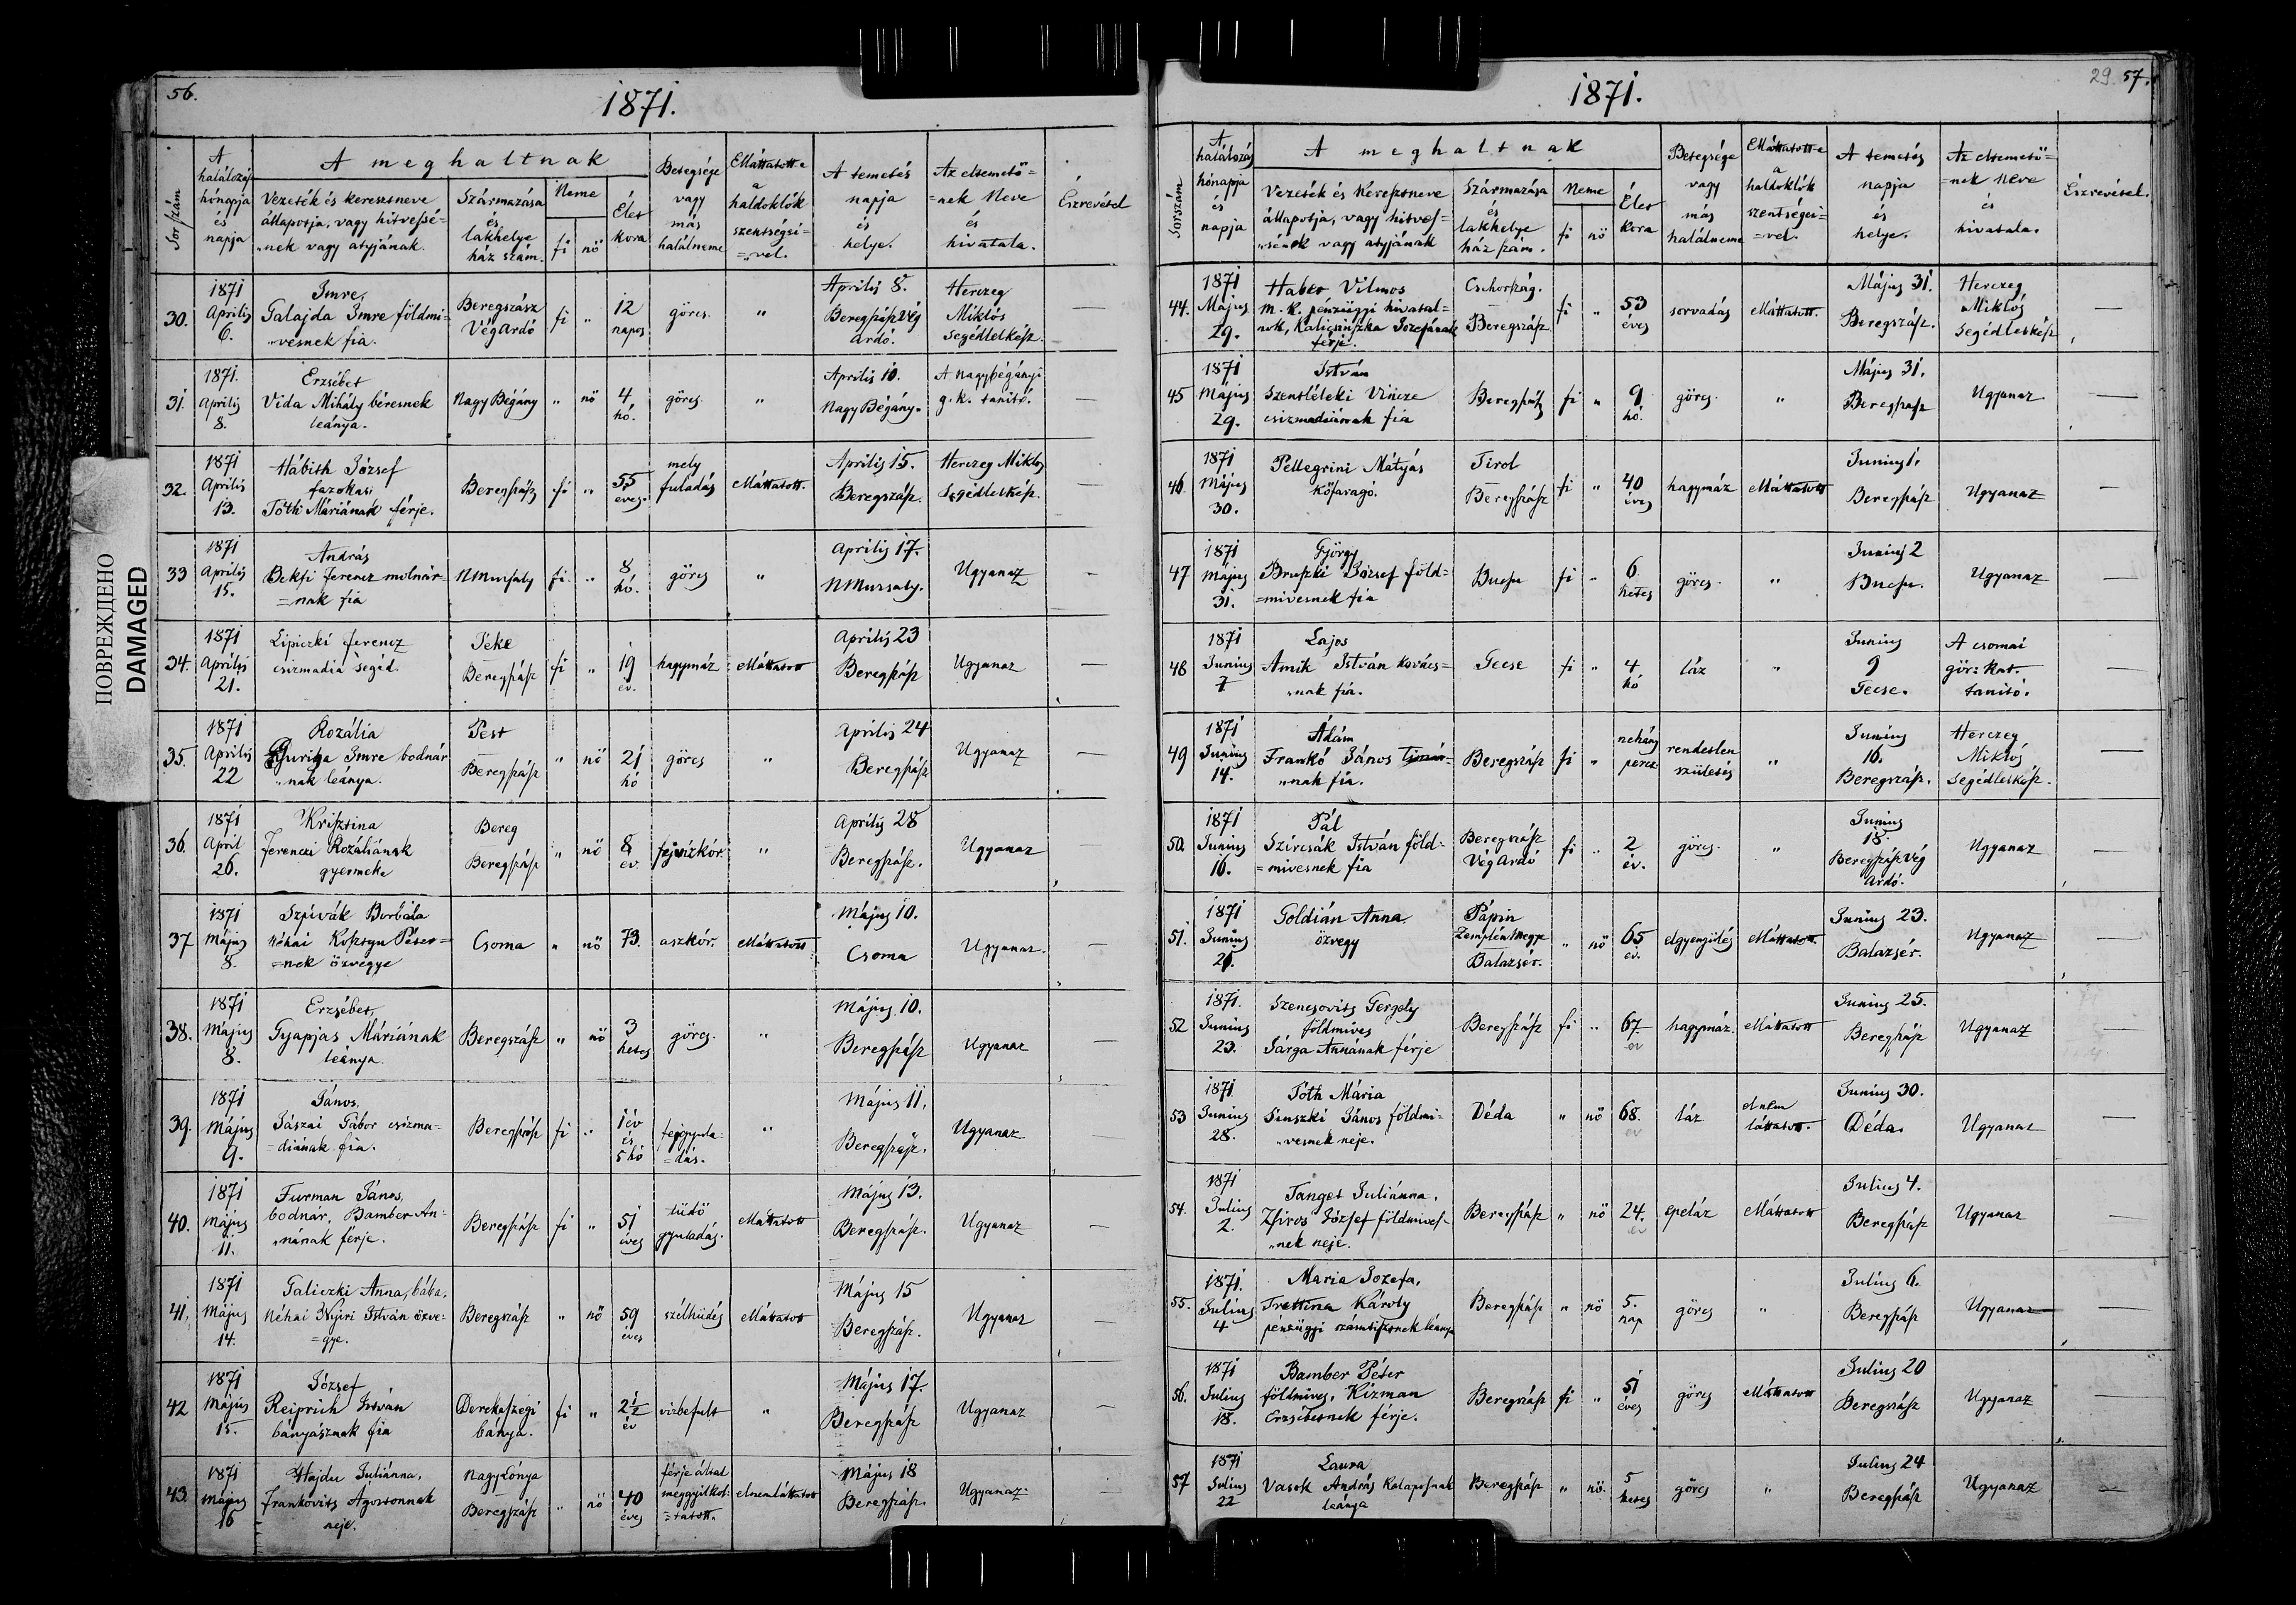 56.
1871.
Sorszám
A halálozás hónapja és napja
A meghaltnak
Vezeték és keresztneve állapotja, vagy hitvessé-
„nek vagy atyjának.
Származása és lakhelye ház szám.
Neme
fi
nő
Élet kora
Betegsége vagy más halálneme
Elláttatott-e a haldoklók szentségei-
=vel.
A temetés napja és helye.
Az eltemető=
=nek Neve és hivatala.
Észrevétel
30. 1871 Aprilis 6. Imre, Galajda Imre földmi-„vesnek fia. Beregszász VégArdó fi „ 12 napos görcs. „ Aprilis 8. Beregszász Vég Ardó. Herczeg Miklós segédlelkész. —
31. 1871. Aprilis 8. Erzsébet Vida Mihály béresnek leánya. Nagy Bégány „ nő 4 hó. görcs. „ Aprilis 10. Nagy Bégány. A nagybégányi g. k. tanító. —
32. 1871 Aprilis 13. Hábith József fazekas, Tóth Máriának férje. Beregszász fi „ 55 éves. mely fuladás elláttatott. Aprilis 15. Beregszász. Herczeg Miklós segédlelkész. —
33 1871 Aprilis 15. András Bekfi Ferencz molnár-=nak fia NMuzsaly fi. „ 8 hó. görcs „ Aprilis 17. NMuzsaly. Ugyanaz —
34. 1871 Aprilis 21. Lipiczki Ferencz csizmadia segéd. Beregszász fi „ 19 év. hagymáz elláttatott Aprilis 23 Beregszász Ugyanaz —
35. 1871 Aprilis 22 Rozália Imre bodnár „nak leánya. Pest Beregszász „ nő 21 hó görcs „ Aprilis 24 Beregszász Ugyanaz —
36. 1871 April 26. Krisztina Ferenczi Rozáliának gyermeke Bereg Beregszász „ nő 8 év. fejvízkór. „ Aprilis 28 Beregszász. Ugyanaz —
37 1871 Május 8. Szpivák Borbála néhai Kosztyu Péter=-nek özvegye Csoma „ nő 73. aszkór. elláttatott Május 10. Csoma Ugyanaz. —
38. 1871 Május 8. Erzsébet, Gyapjas Máriának leánya. Beregszász „ nő 3 hetes görcs. „ Május 10. Beregszász Ugyanaz —
39. 1871 Május 9. János, Jászai Gábor csizma-=diának fia. Beregszász fi „ 1 év és 5 hó „ Május 11. Beregszász. Ugyanaz —
40. 1871 Május 11. Furman János, bodnár, Bamber An-„nának férje. Beregszász fi „ 51 éves tüdő gyuladás. elláttatott Május 13. Beregszász. Ugyanaz —
41. 1871 Május 14. Galiczki Anna, bába, néhai Nyiri István özve-=gye. Beregszász „ nő 59 éves szélhüdés elláttatott Május 15 Beregszász. Ugyanaz —
42 1871 Május 15. József Reiprich István bányásznak fia Derekaszegi bánya. fi „ 2½ év vizbefult „ Május 17. Beregszász Ugyanaz —
43. 1871 Május 16 Hajdu Juliánna, Frankovits Ágostonnak neje. Nagy Lónya Beregszász „ nő 40 éves férje által meggyilkol-=tatott. el nem láttatott Május 18 Beregszász. Ugyanaz. —
ПОВРЕЖДЕНО
DAMAGED
29. 57.
1871.
Sorszám
A halálozás hónapja és napja
A meghaltnak
Vezeték és Keresztneve állapotja, vagy hitves-
„sének vagy atyjának
Származása és lakhelye ház szám.
Neme
fi
nő
Élet kora
Betegsége vagy más halálneme
Elláttatott-e a haldoklók szentségei=
=vel.
A temetés napja és helye.
Az eltemető=
=nek Neve és hivatala.
Észrevétel.
44. 1871 Május 29. Haber Vilmos m. k. pénzügyi hivatal-nok, Jozefának férje. Csehország. Beregszász fi „ 53 éves sorvadás elláttatott. Május 31. Beregszász. Herczeg Miklós segédlelkész —
45 1871 Május 29. István Szentléleki Vincze csizmadiának fia Beregszász fi „ 9 hó. görcs. „ Május 31. Beregszász Ugyanaz —
46. 1871 Május 30. Pellegrini Mátyás kőfaragó. Tirol Beregszász fi „ 40 éves hagymáz elláttatott Junius 1. Beregszász Ugyanaz —
47 1871 Május 31. György Bruszki József föld=-=mivesnek fia Bucsu fi „ 6. hetes görcs. „ Junius 2 Bucsu. Ugyanaz —
48 1871 Junius 7 Lajos Amik István kovács=„nak fia. Gecse fi „ 4 hó láz „ Junius 9 Gecse. A csomai gör: kat. tanító. —
49 1871 Junius 14. Ádám Frankó János timár-„nak fia. Beregszász fi „ nehány percz rendetlen születés „ Junius 16. Beregszász. Herczeg Miklós segédlelkész. —
50. 1871 Junius 16. Pál Szircsák István föld-=mivesnek fia Beregszász VégArdó fi „ 2 év. görcs. „ Junius 18. Beregszász Vég Ardó. Ugyanaz —
51. 1871 Junius 21. Goldián Anna özvegy Zemplén Megye Balazsér. „ nő 65 év. elgyengülés elláttatott. Junius 23. Balazsér. Ugyanaz —
52 1871. Junius 23. Szencsovits Gergely földmives Sárga Annának férje Beregszász fi „ 67 év hagymáz. elláttatott Junius 25. Beregszász Ugyanaz —
53 1871 Junius 28. Tóth Mária János földmi-„vesnek neje. Déda „ nő 68. év láz el nem láttatott. Junius 30. Déda. Ugyanaz —
54. 1871 Julius 2. Tanget Juliánna, Zsiros József földmives-„nek neje. Beregszász „ nő 24. év epeláz elláttatott Julius 4. Beregszász Ugyanaz —
55. 1871. Julius 4 Maria Jozefa, Trettina Károly pénzügyi számtisztnek leánya Beregszász „ nő 5. nap görcs „ Julius 6. Beregszász Ugyanaz —
56. 1871 Julius 18. Bamber Péter földmives, Kizman Erzsébetnek férje. Beregszász fi „ 51 éves görcs elláttatott Julius 20 Beregszász Ugyanaz —
57 1871 Julius 22 Laura Vasok András Kalaposnak leánya Beregszász „ nő. 5 hetes görcs „ Julius 24 Beregszász Ugyanaz —